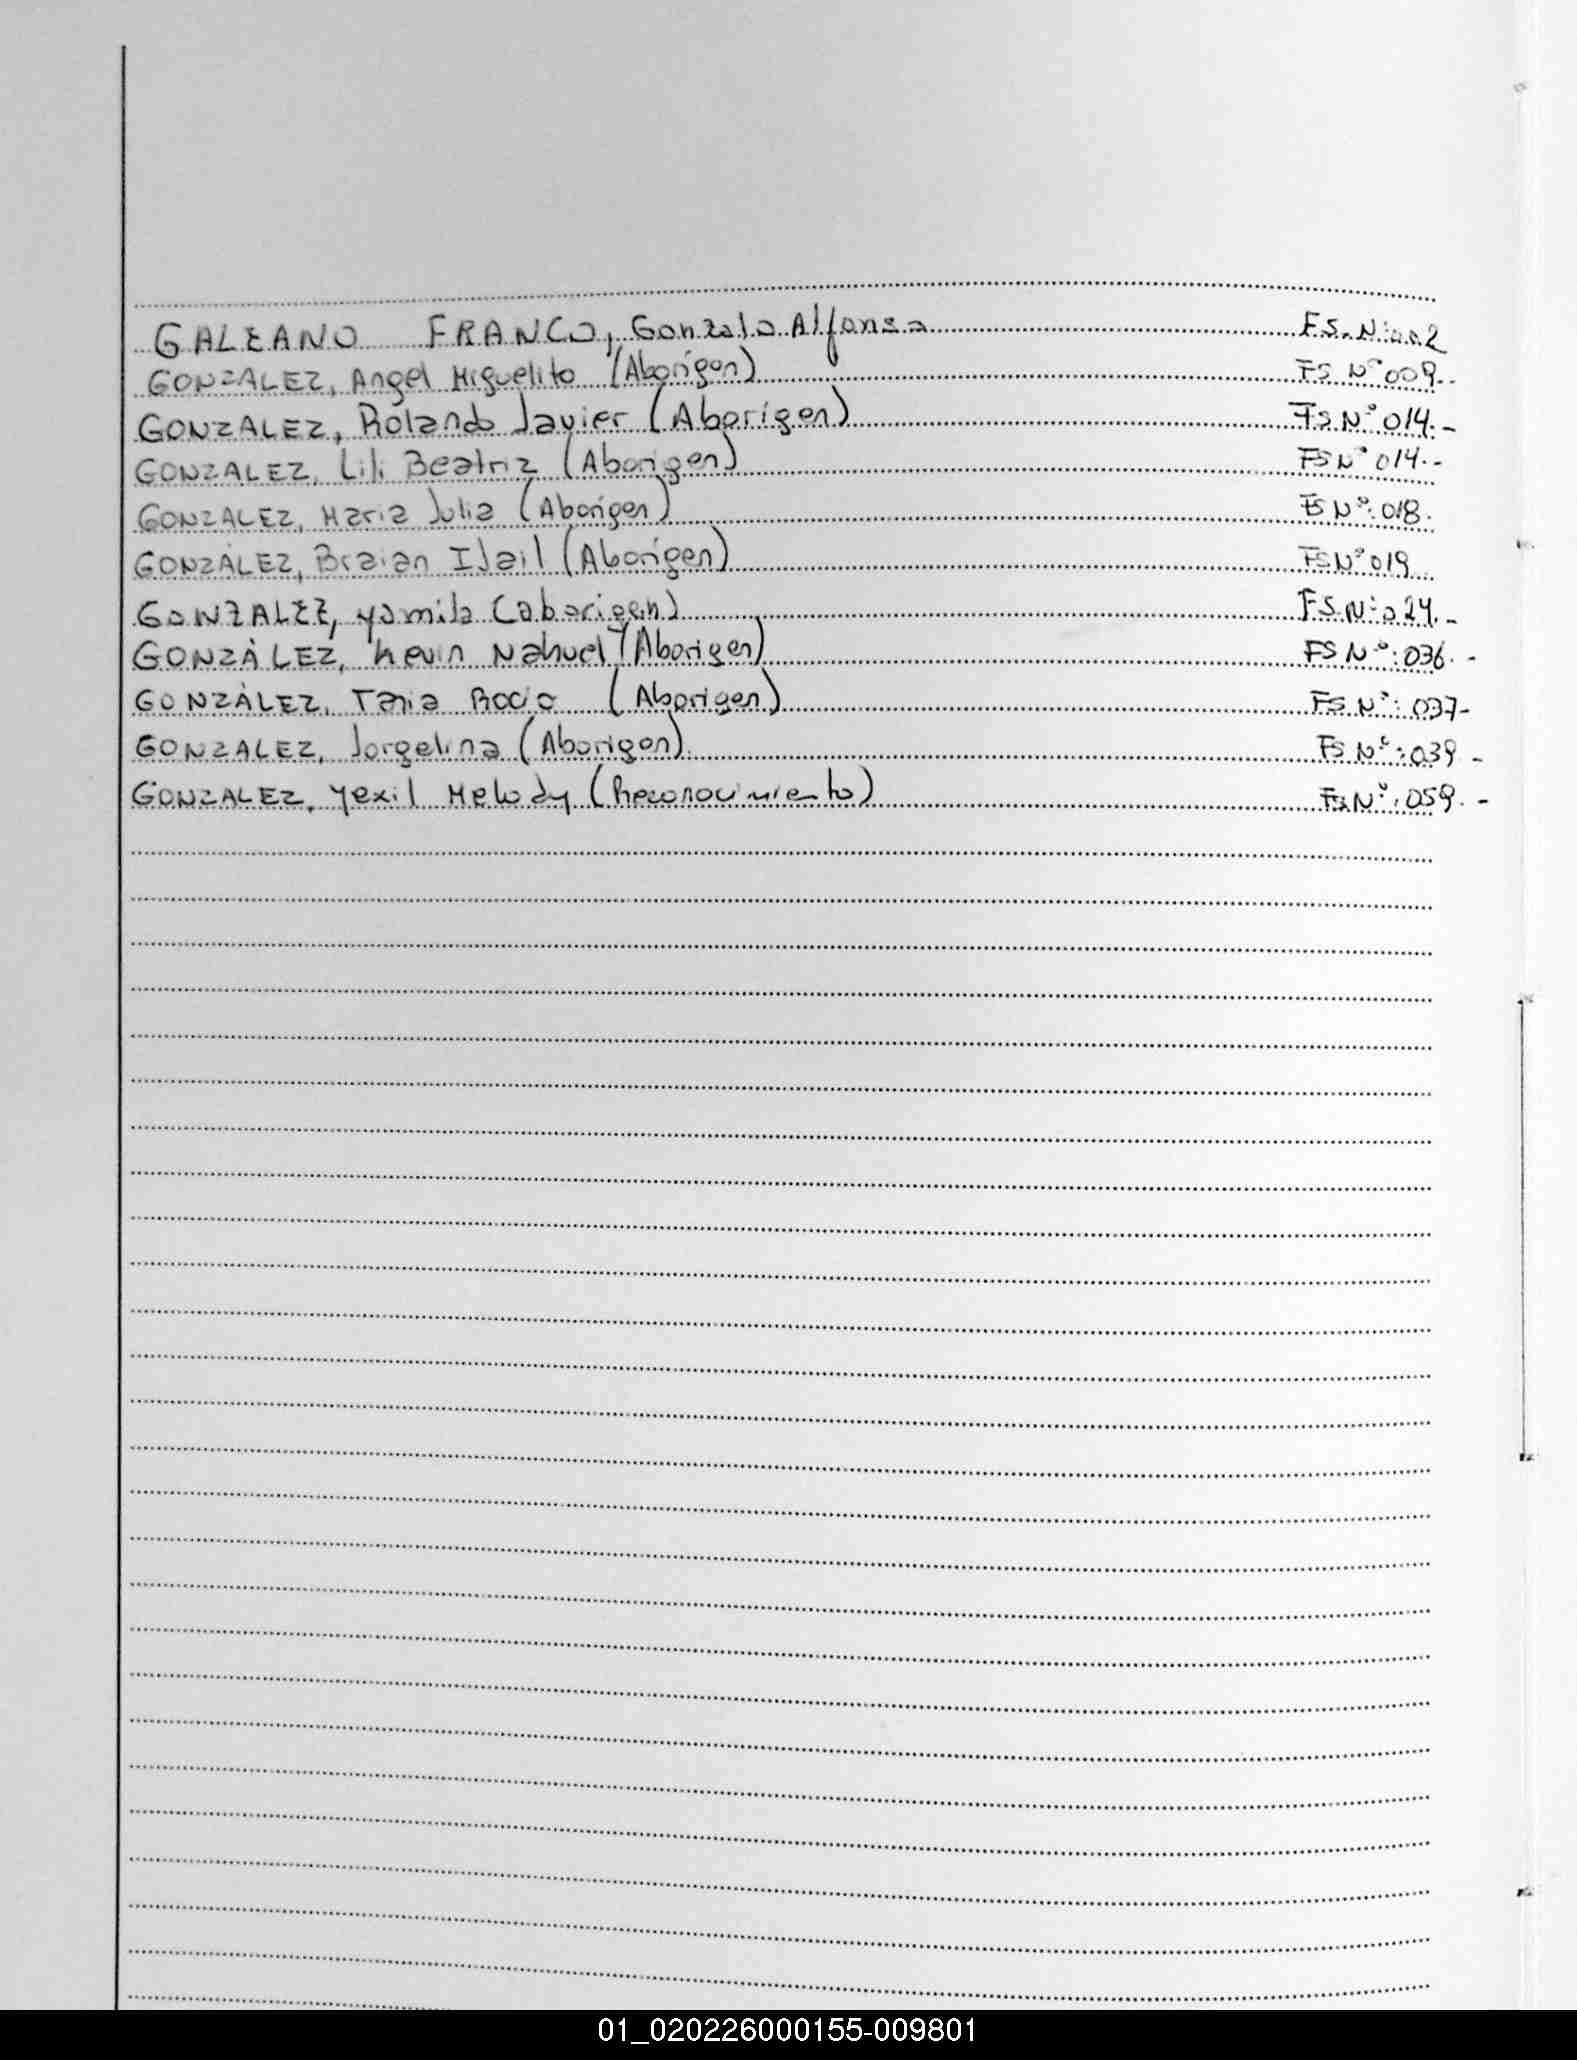 GALEANO FRANCO, Gonzalo Alfonso F.S. N:002
GONZALEZ, Angel Miguelito (Aborígen) FS N° 009.
GONZALEZ, Rolando Javier (Aborígen) FS N° 014.-
GONZALEZ, Lili Beatriz (Aborigen) FS N° 014.-
GONZALEZ, Maria Julia (Aborígen) FS N°: 018.
GONZÁLEZ, Braian (Aborígen) FS N° 019
GONZALEZ, yamila (aborigen) F.S.N:024.-
GONZÁLEZ, Kevin Nahuel (Aborigen) FS N°:036.-
GONZÁLEZ, Tania Rocio (Aborigen) FS N°: 037-
GONZALEZ, Jorgelina (Aborigen) FS N°:039.-
GONZALEZ, Yexil Melody (Reconocimiento) FS N°:059.-
01_020226000155-009801